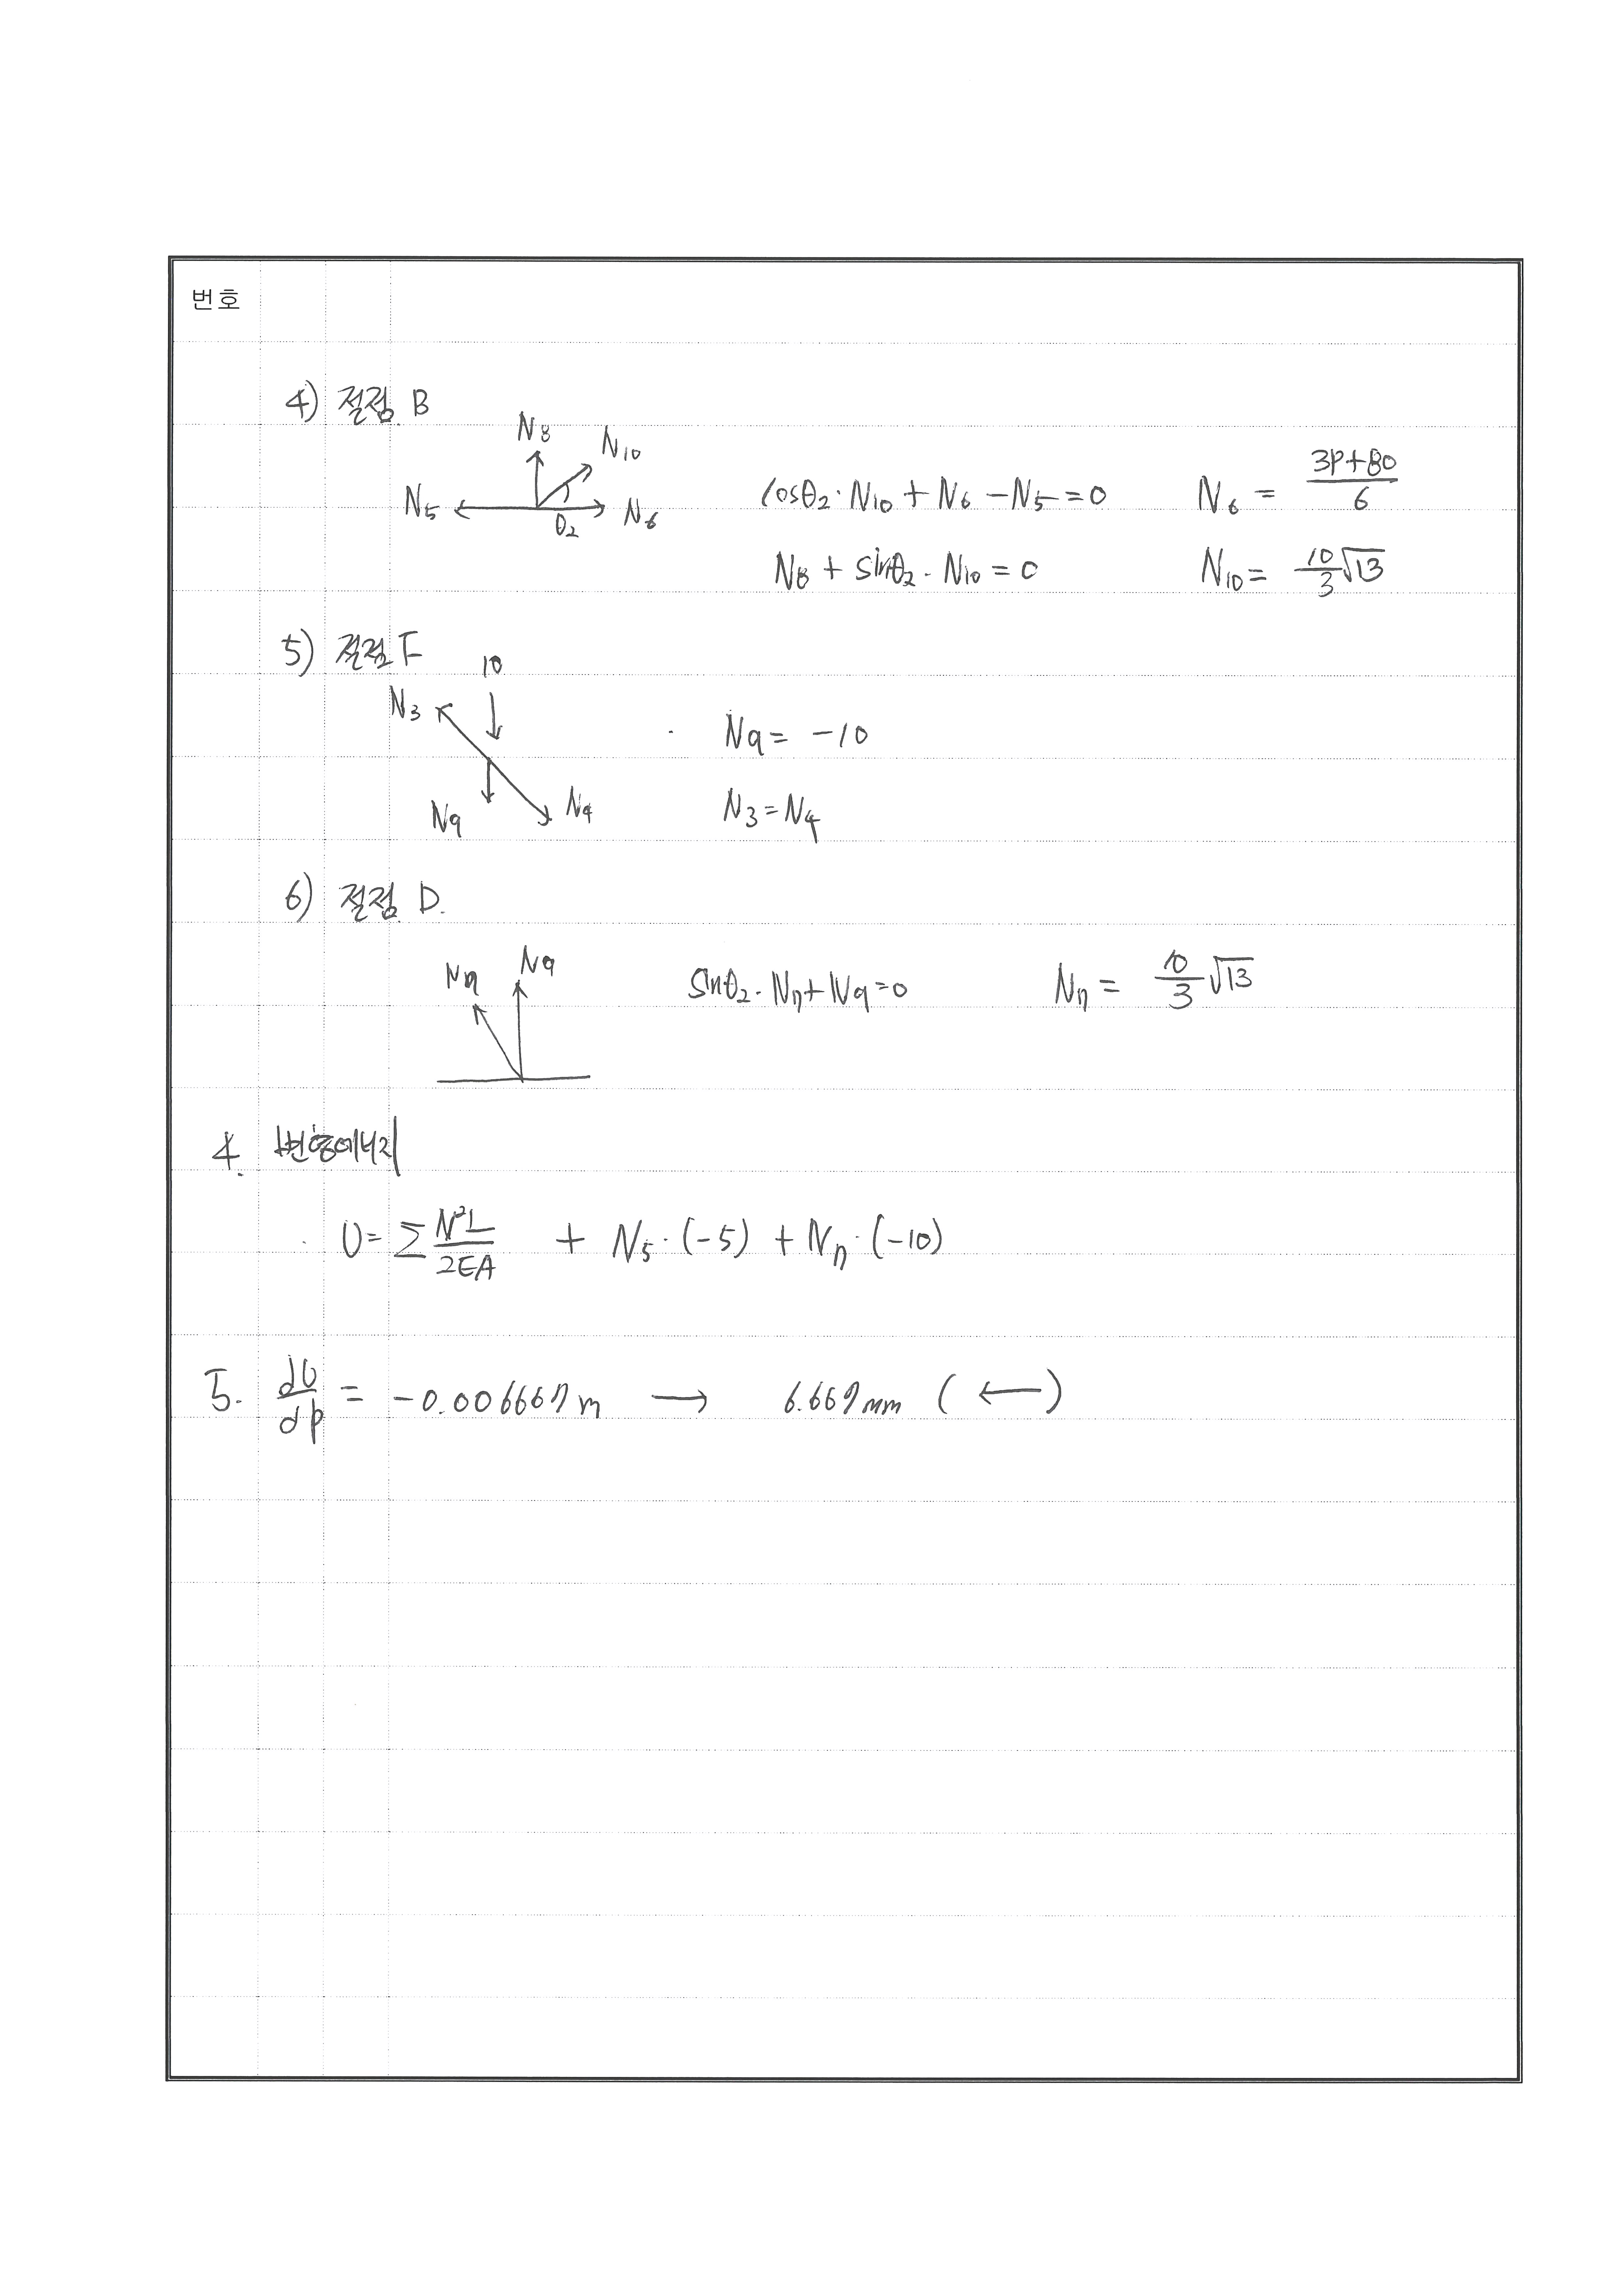 번호
4) 절점 B
N8 N10
N5 θ2 N6
cosθ2·N10 + N6 - N5 = 0 N6 = (3P+80)/6
N8 + sinθ2·N10 = 0 N10 = 10/3 √13
5) 절점 F
10
N3
N9 N4
N9 = -10
N3 = N4
6) 절점 D.
N7 N9
sinθ2·N7 + N9 = 0 N7 = 10/3 √13
4. 변형에너지
U = Σ N²L/2EA + N5·(-5) + N7·(-10)
5. dU/dP = -0.006667m → 6.667mm (←)